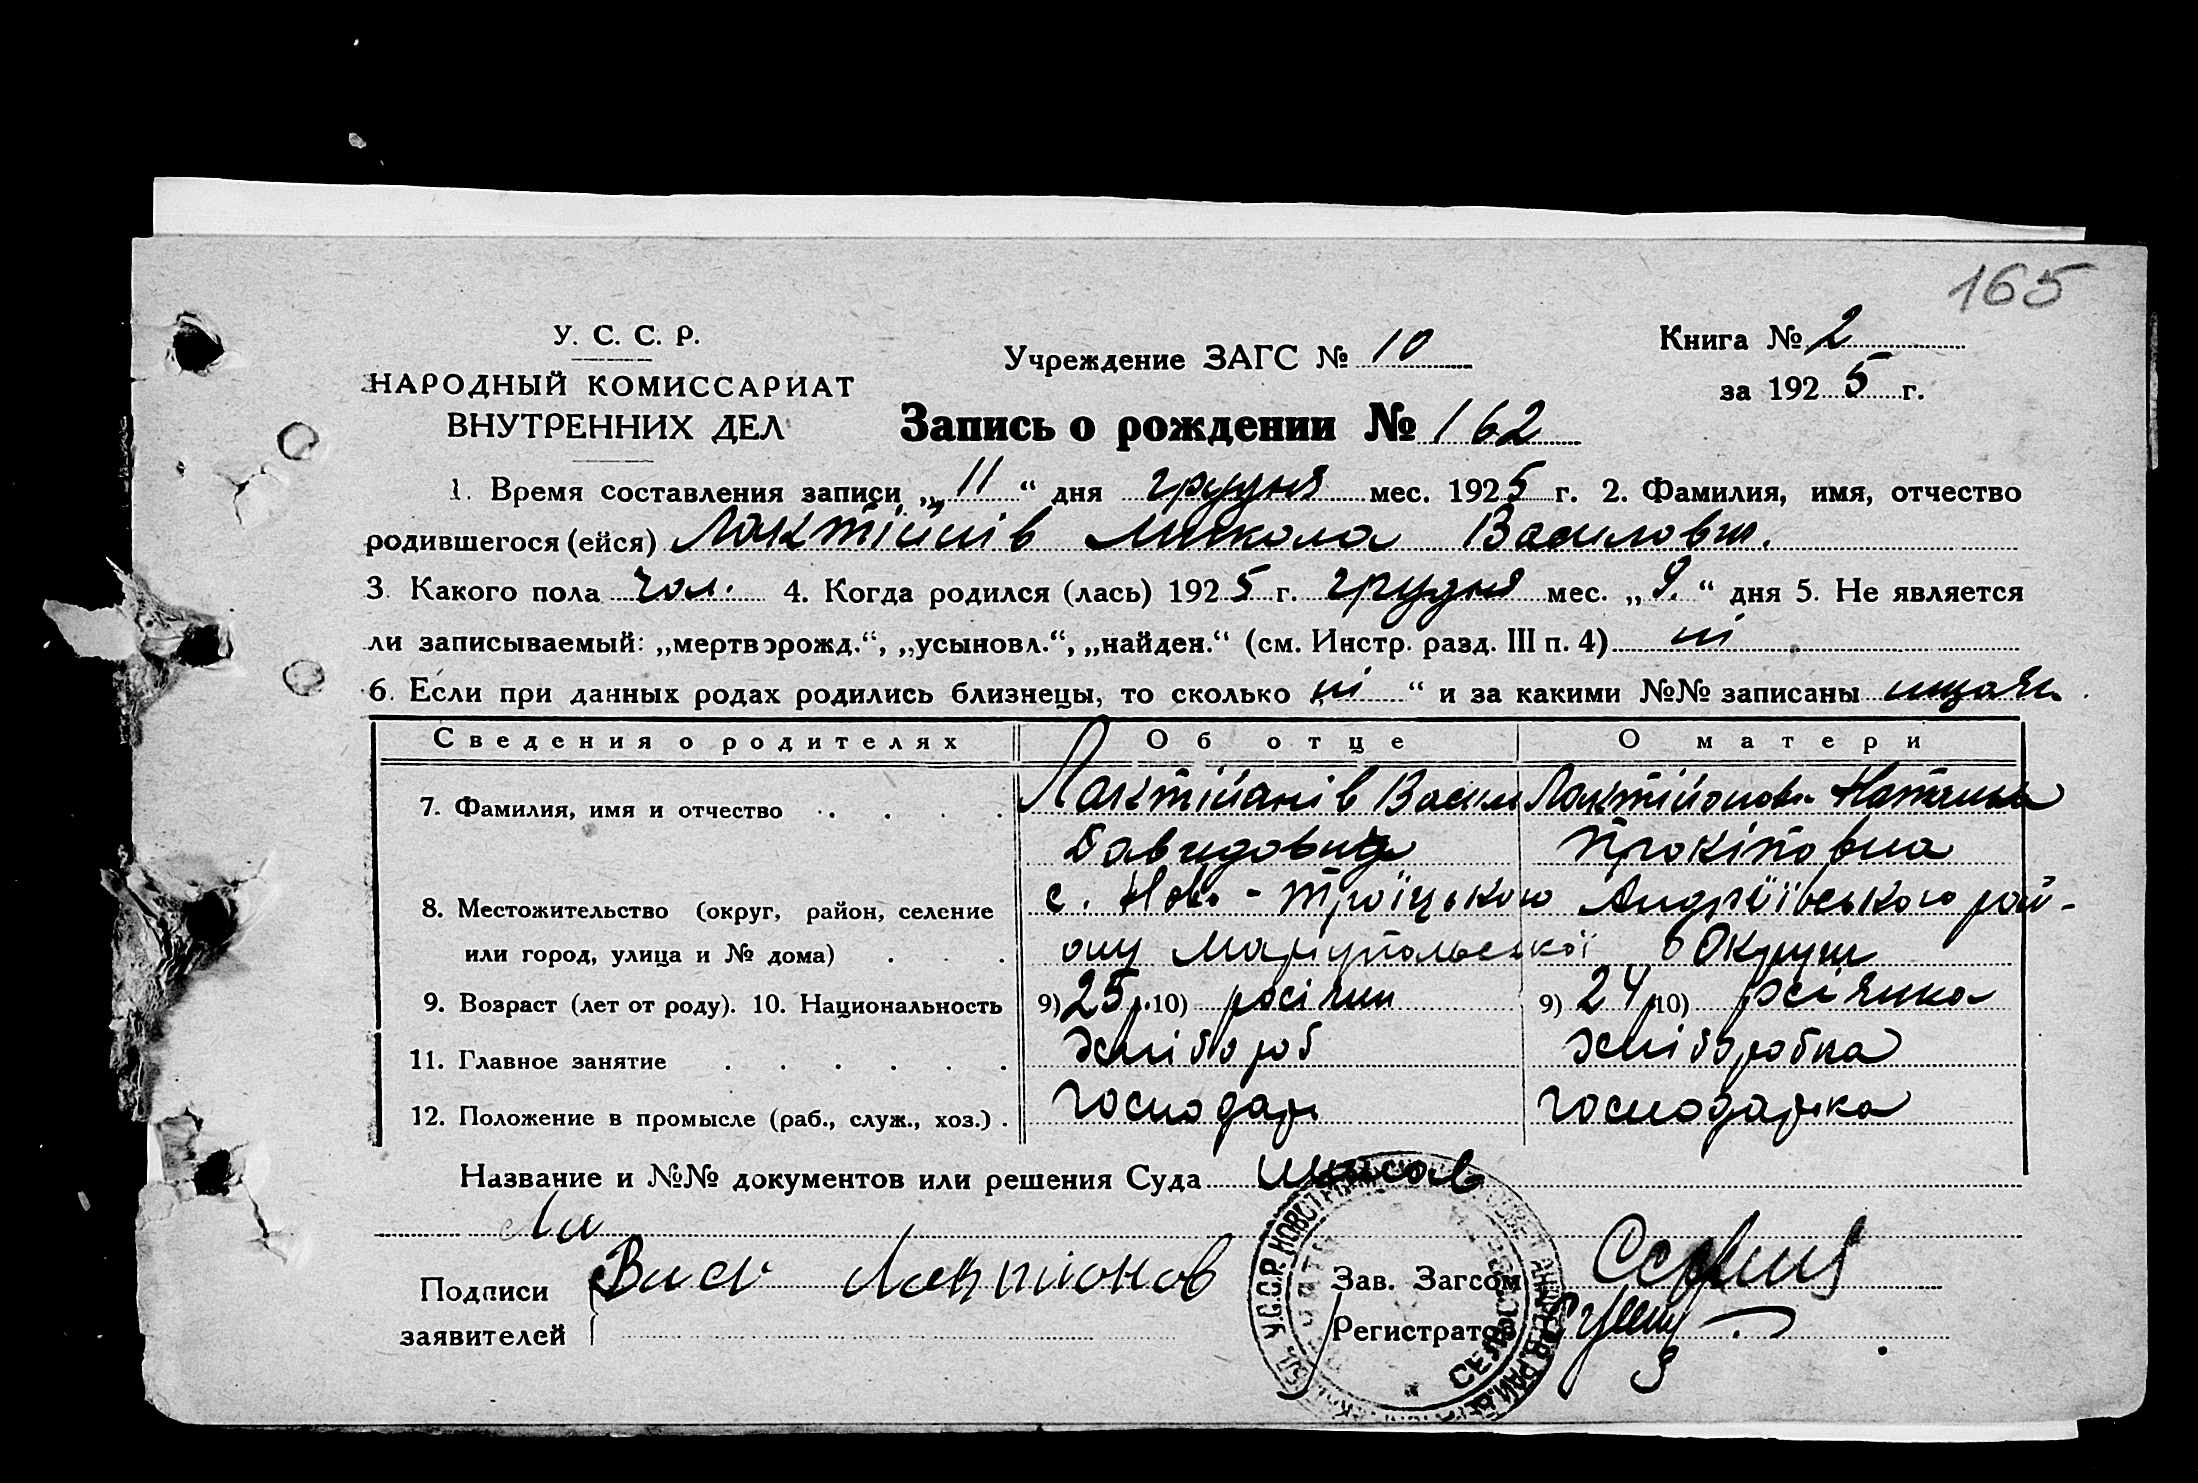 165
У. С. С. Р.
НАРОДНЫЙ КОМИССАРИАТ
ВНУТРЕННИХ ДЕЛ
Учреждение ЗАГС № 10
Книга № 2
за 1925 г.
Запись о рождении № 162
1. Время составления записи „11“ дня грудня мес. 1925 г. 2. Фамилия, имя, отчество
родившегося (ейся) Лактійнів Микола Василович.
3. Какого пола чол. 4. Когда родился (лась) 1925 г. грудня мес. „9.“ дня 5. Не является
ли записываемый: „мертворожд.“, „усыновл.“, „найден.“ (см. Инстр. разд. III п. 4) ні
6. Если при данных родах родились близнецы, то сколько ні “ и за какими №№ записаны
Сведения о родителях Об отце О матери
7. Фамилия, имя и отчество Лактійанів Васил Лактійонова Наталка
Давидович Прокіповна
8. Местожительство (округ, район, селение с. Ново-Троїцького Андріївського рай-
или город, улица и № дома) ону Маріупольської Округи
9. Возраст (лет от роду). 10. Национальность 9) 25 р. 10) росіянин 9) 24 р 10) росіянка
11. Главное занятие хлібороб хлібробка
12. Положение в промысле (раб., служ., хоз.) господарь господарка
Название и №№ документов или решения Суда
Ла
Подписи Васи Лактионов Зав. Загсом
заявителей Регистратор
У.С.С.Р. СЕЛЬ